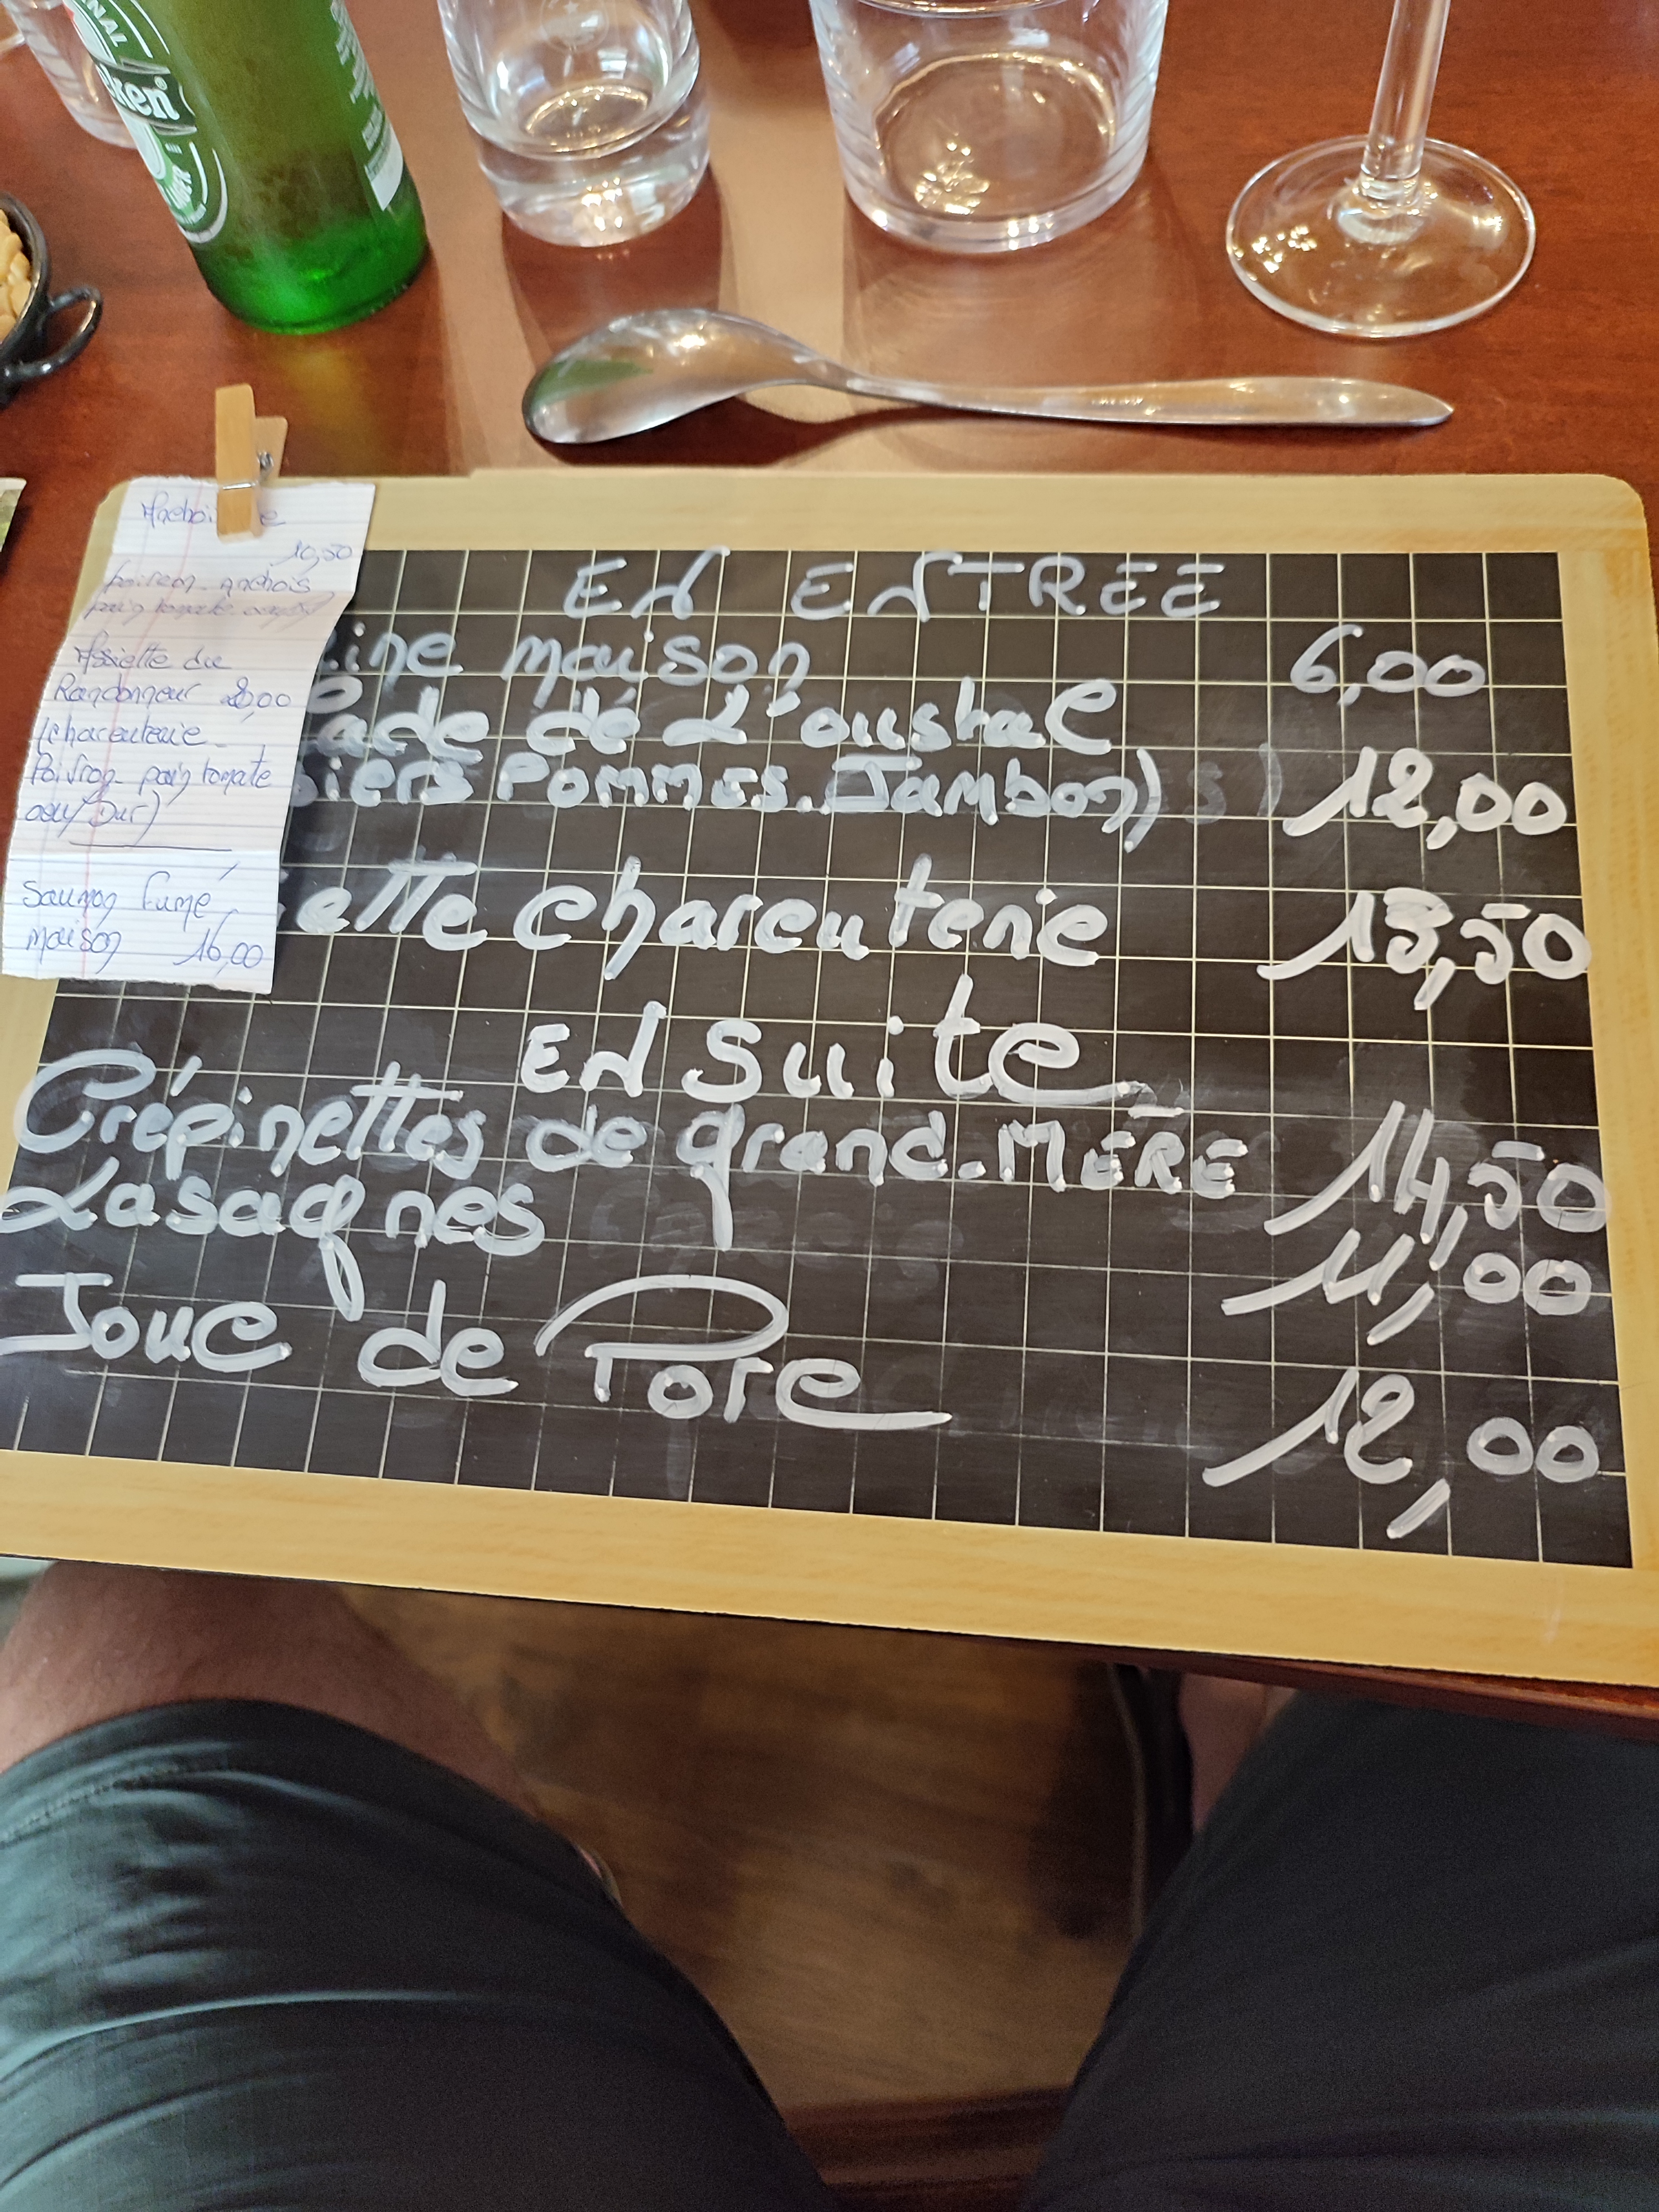 NAL
ken
Anchoi e
10,50
poivron - anchois
pain tomate
Assiette du
Randonneur 20,00
(charcuterie -
Poivron - pain tomate
oeuf Dur)
Saumon Fumé
maison 16,00
EN ENTRÉE
ine maison 6,00
ade dé L'oustal
iers Pommes. Jambon) 12,00
iette charcuterie 13,50
EN suite
Crépinettes de grand-MÈRE 14,50
Lasagnes 11,00
Joue de Porc 12,00